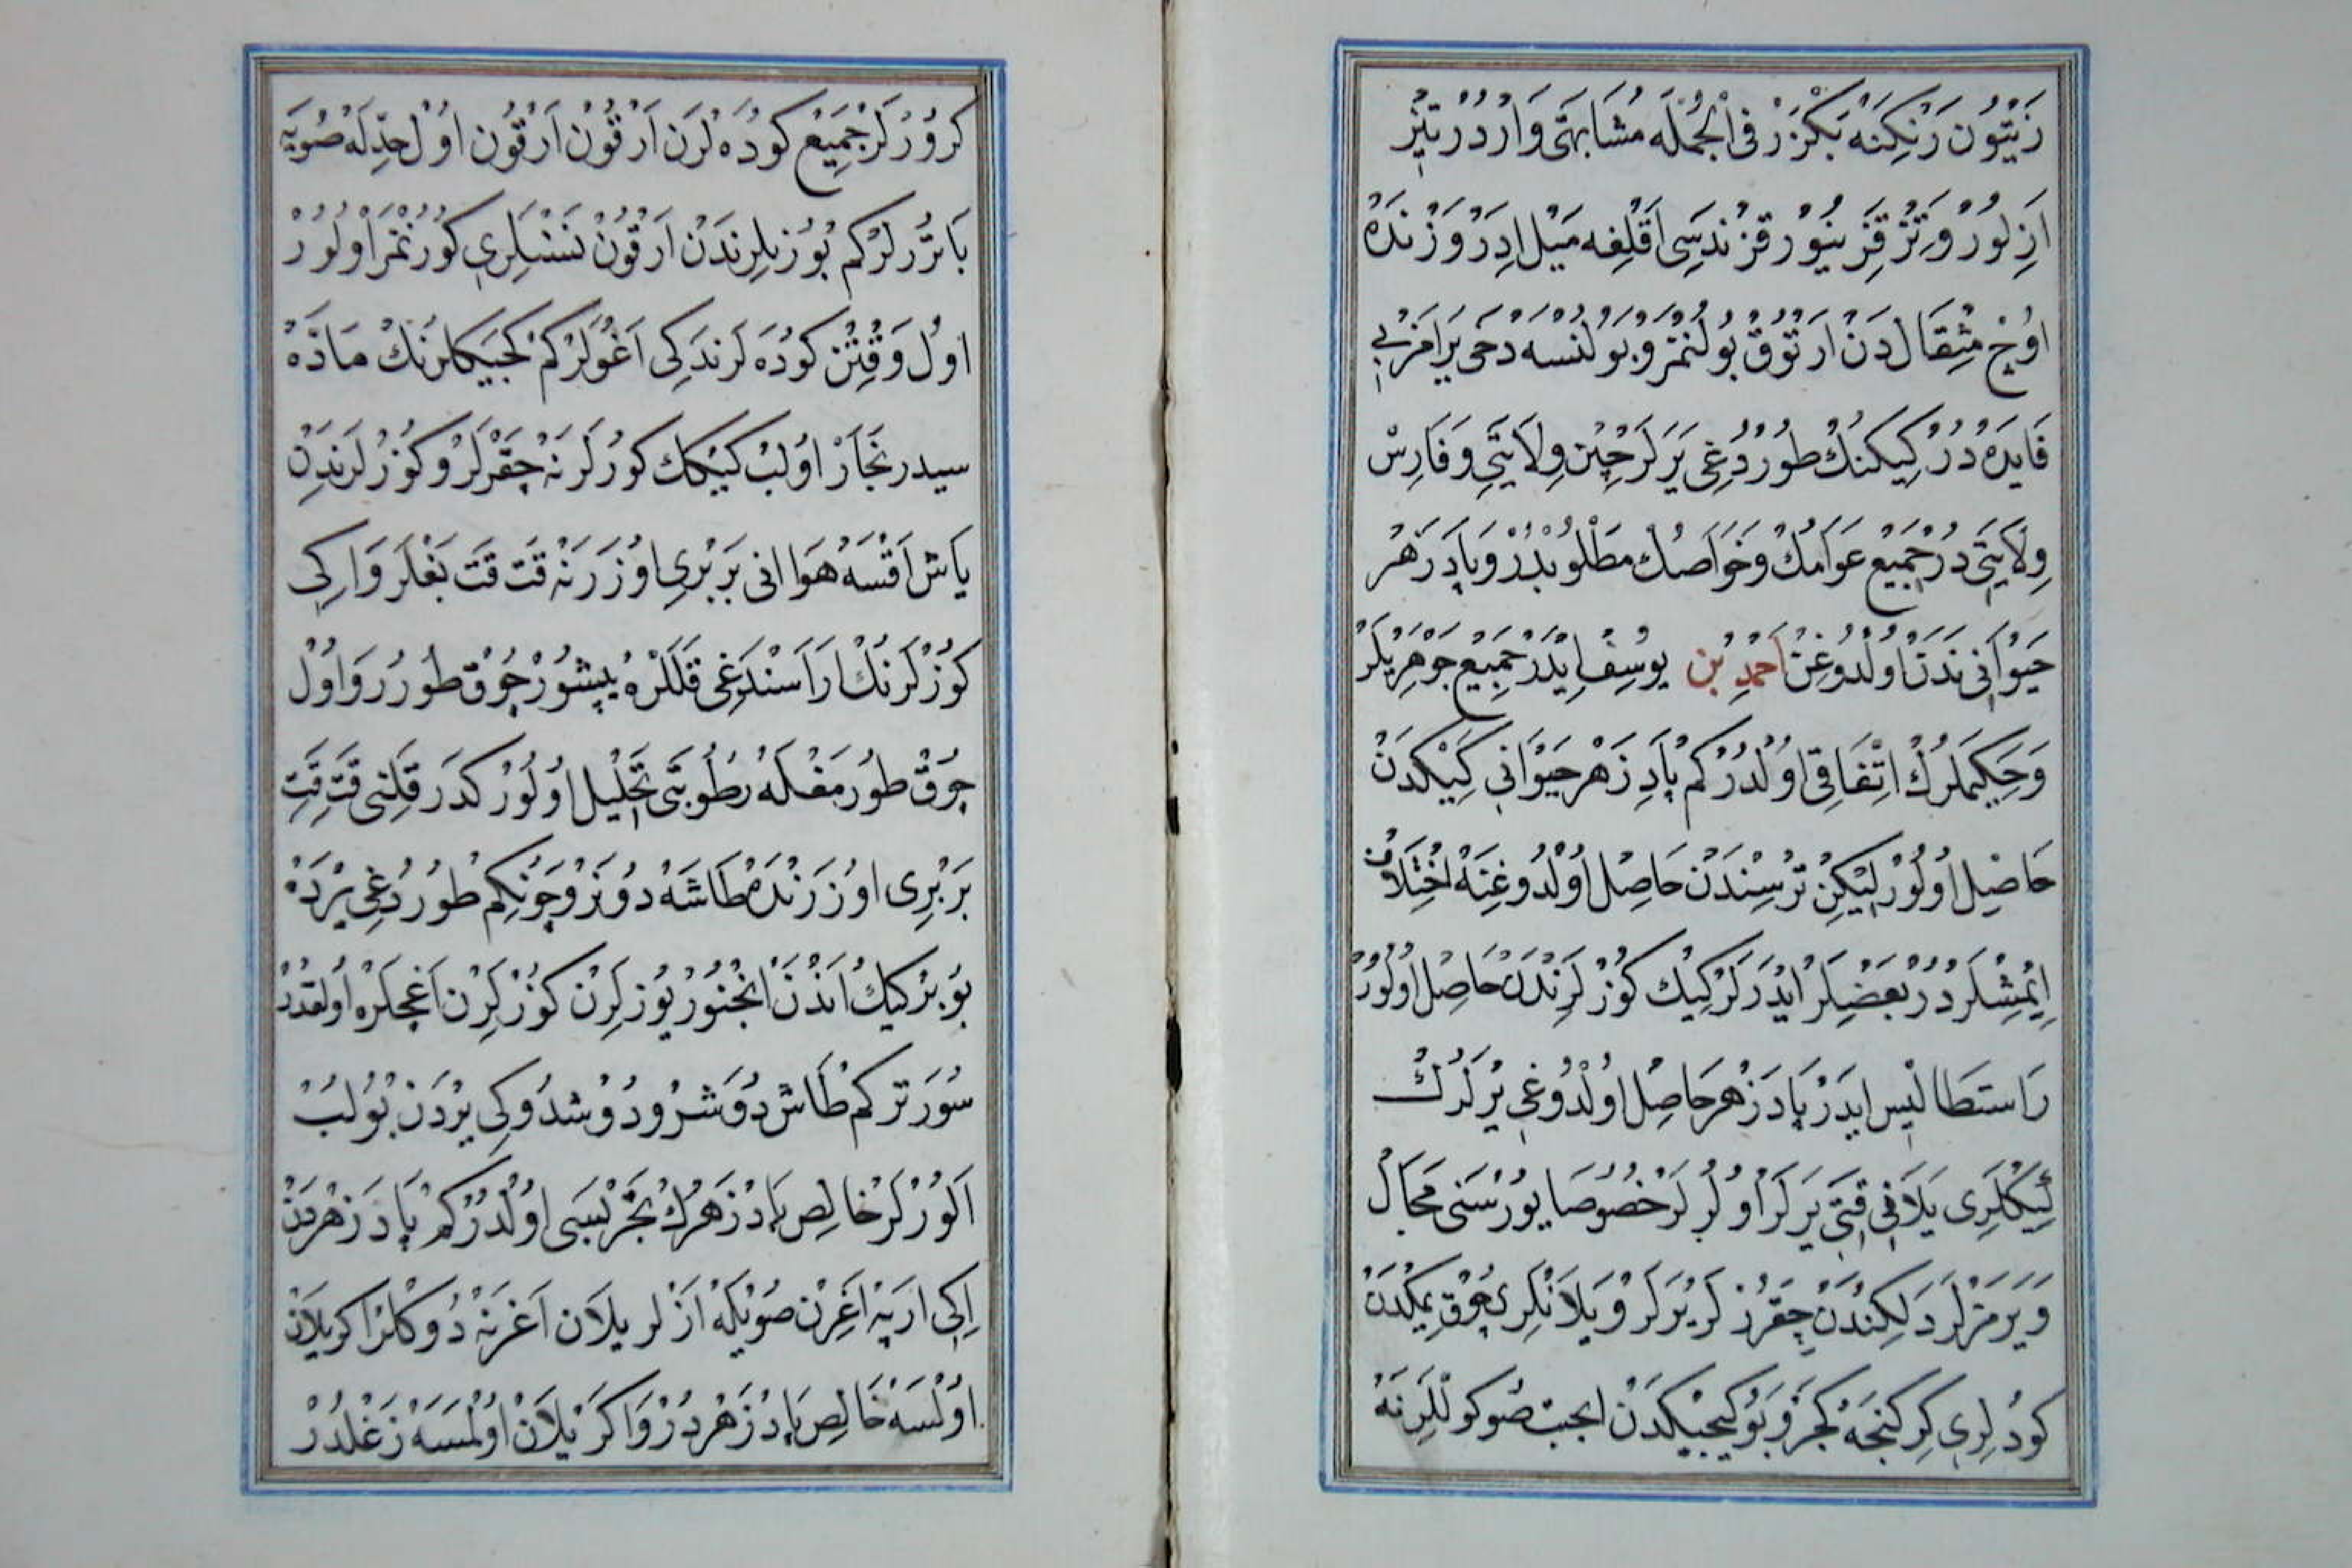 زَيْتُون رَنْكِنَه بَكْزَرْ فى الْجُمْلَه مُشَابهَتى وَارْدُرْ تيز
اَزِلور وَتِزْ قِزَر سُيور قزندسى اَقْلِغه مَيْل ادر وَزْنده
اوُچ مِثْقَال دَنْ ارتوق بُولُنْمَز وبولنسه دخى يرامز بى
فَايده دُرْ كِيكنك طوردُغى يَرلَر چين وِلَايَتى وَفَارِسْ
وِلَايَتى دُرْ جَميع عَوامك وخَواصك مطلوبدر وپادزهر
حَيْوَانى نَدَن اولدوغن احمد بن يوسف ايدر جميع جوهريلر
وَحَكيملرك اتّفَاقى اولدُرْكم پادزهر حيوانى كيكدن
حَاصِل اولور ليكن نرسندن حاصل اولدوغنه اختلاف
ايمشلردر بعضلر ايدرلر كيك كوزلرندن حاصل اولور
رَاستطاليس ايدر پادزهر حاصل اولدوغى يرلرك
كيكلرى يلانى قتى يرلر اولرلر خصوصا يورسنى محال
ويرمزلر دلكندن چقررلر يرلر ويلانلرى چوق يمكدن
كودلرى كركنجه كجر وبو كيجيكدن ايجب صو كوللرنه
كرورلر جميع كوده لرن ارقون ارقون اول حدله صويه
باتررلركم يوزبلرندن ارقون نسنلرى كورنمز اولور
اول وقتن كوده لرندكى اغولركم كجيكلرنك مادّه
سيدر بخار اولب كيكك كوزلرنه چقرلر وكوزلرندن
ياش اقسه هوا انى بربرى اوزرنه قت قت بغلر واكى
كوزلرنك اراسندغى قللره يپشور چوق طورر واول
چوق طورمغله رطوبتى تحليل اولور كدر قلنى قت قت
بربرى اوزرنده طاشه دونر وچونكم طوردغى يرده
بو بر كيك اندن انجنور يوزلرن كوزلرن اغجلره اولقدر
سورترکم طاش دوشر ودوشدوكى يردن بولب
الورلر خالص پادزهرك تجربسى اولدركم پادزهردن
اكى ارپه اغرن صويله ازلر يلان اغزنه دوكلر اكر يلان
اولسه خالص پادزهردر واكر يلان اولمسه زغلدر